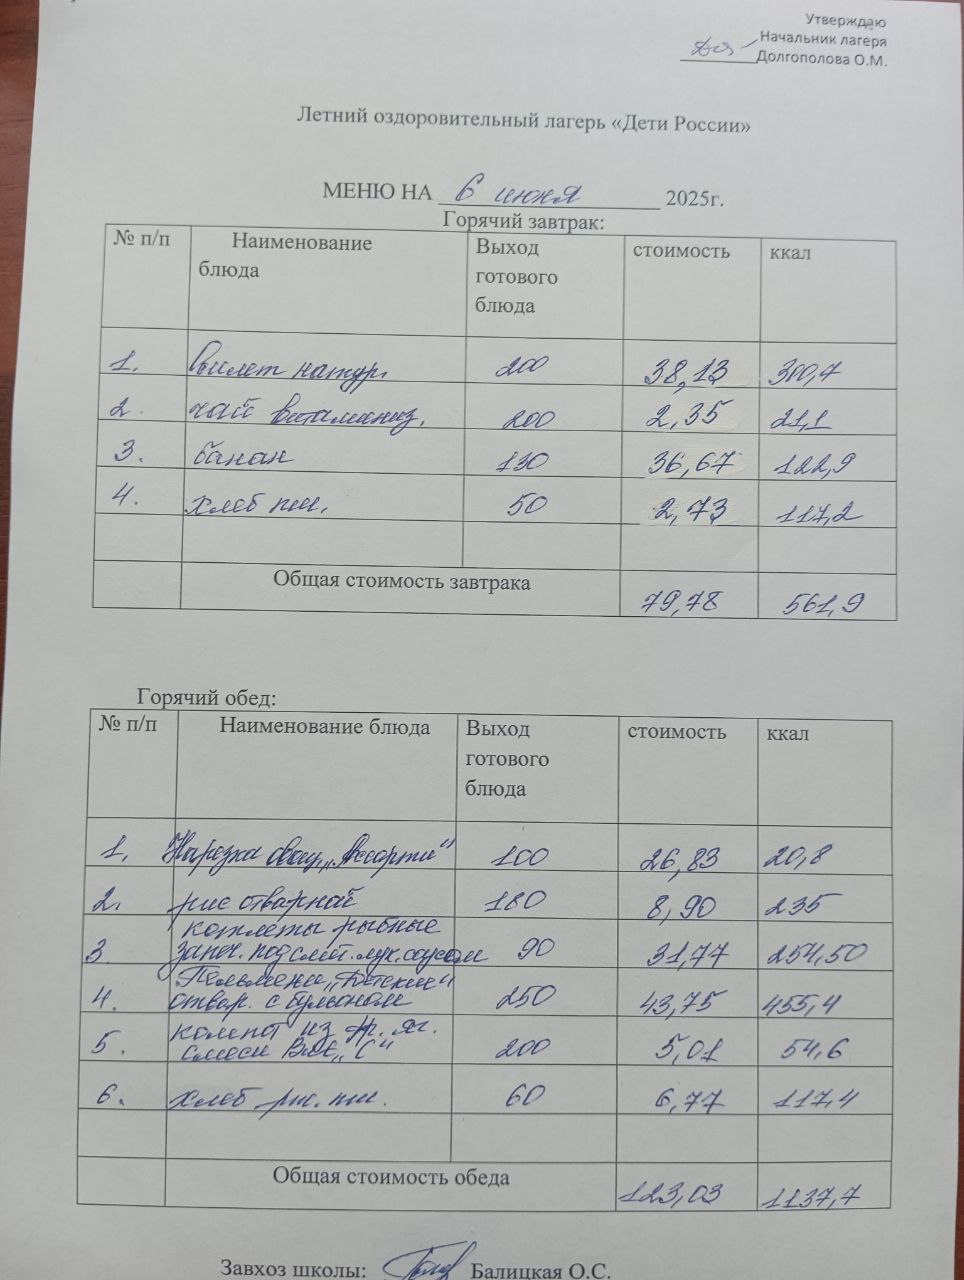 Утверждаю
Начальник лагеря
Долгополова О.М.
Летний оздоровительный лагерь «Дети России»
МЕНЮ НА 6 июня 2025г.
Горячий завтрак:
№ п/п Наименование блюда Выход готового блюда стоимость ккал
1. омлет натур. 200 38,13 300,7
2. чай витаминиз. 200 2,35 21,1
3. банан 130 36,67 122,9
4. хлеб пш. 50 2,73 117,2
Общая стоимость завтрака 79,78 561,9
Горячий обед:
№ п/п Наименование блюда Выход готового блюда стоимость ккал
1. Нарезка овощ. „Ассорти" 100 26,83 20,8
2. рис отварной 180 8,90 235
3 котлеты рыбные
запеч. под смет. лук. соусом 90 31,77 254,50
4. Пельмени „Детские"
отвар. с бульоном 250 43,75 455,4
5. компот из фр. яг.
смеси Вит „С" 200 5,01 54,6
6. хлеб рж. пш. 60 6,77 117,4
Общая стоимость обеда 123,03 1137,7
Завхоз школы: Балицкая О.С.